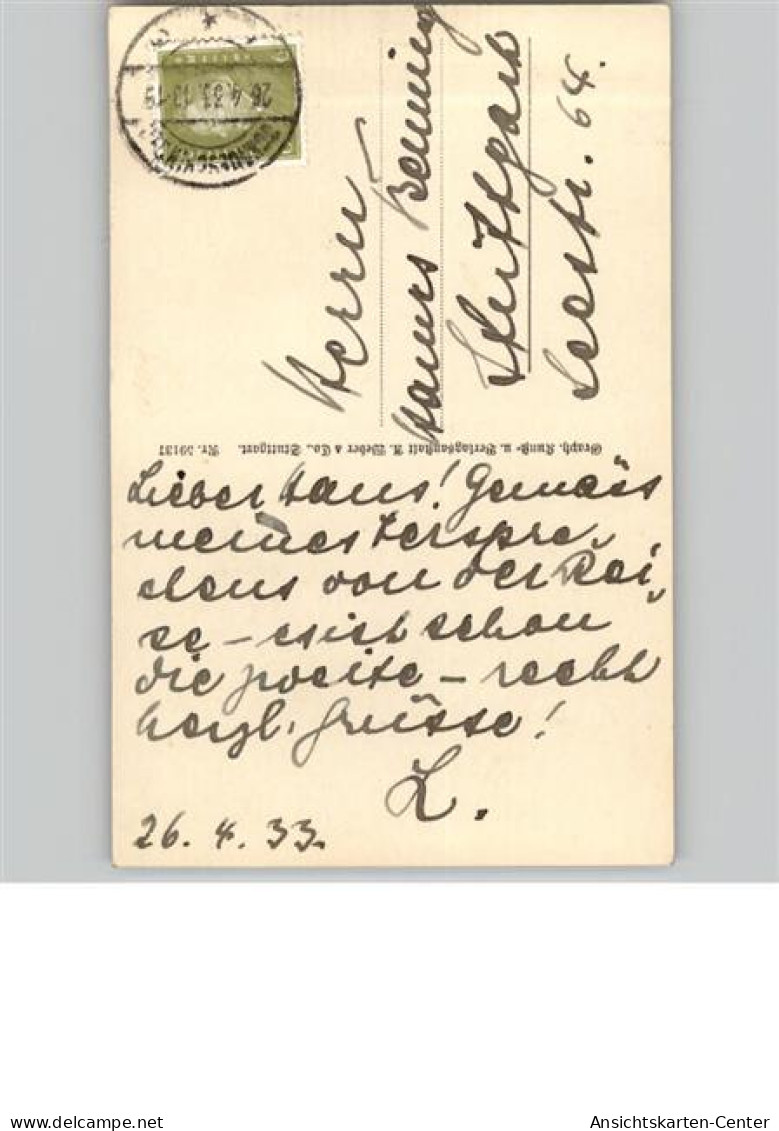 26.4.33. 18-19
Herrn
Hanns Benning
Stuttgart
Seestr. 64.
Graph. Kunst- u. Verlagsanstalt A. Weber & Co., Stuttgart. Nr. 59137
Lieber Hans! Gemäss
meines Verspre-
chens von der Rei-
se – es ist schon
die zweite – recht
herzl. Grüsse!
L.
26. 4. 33.
delcampe.net
Ansichtskarten-Center